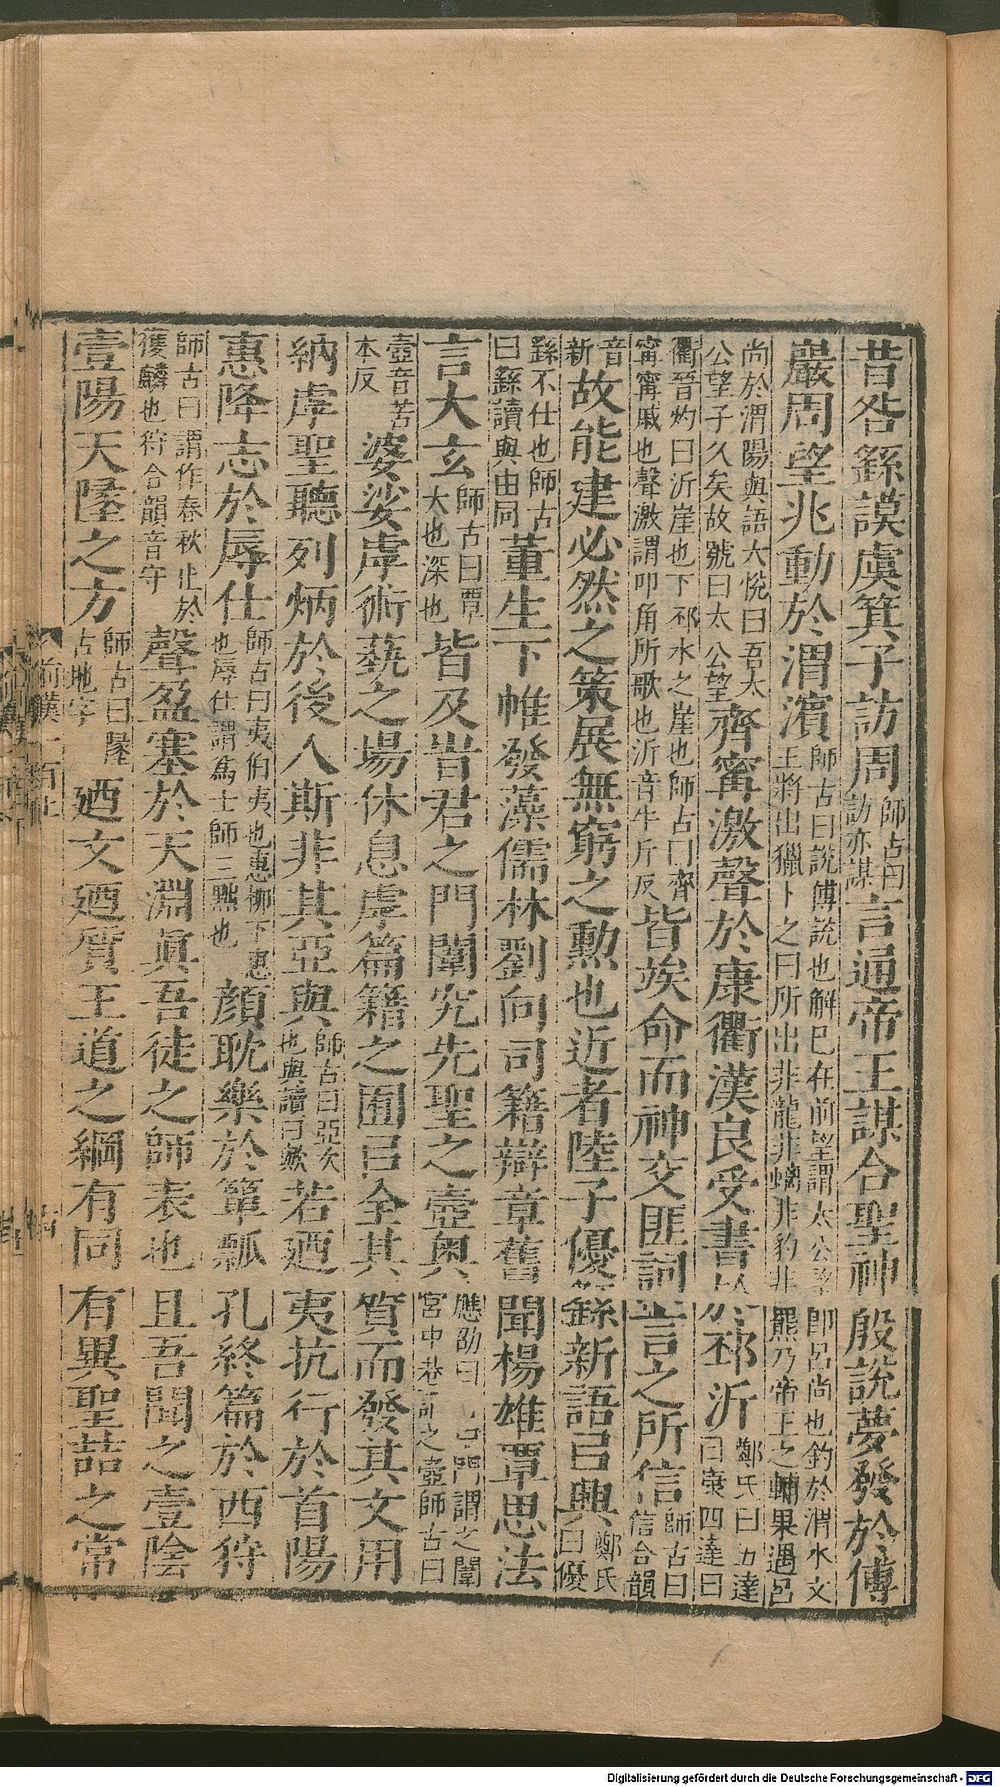 昔咎繇謨虞箕子訪周師古曰訪亦謀言通帝王謀合聖神殷說夢發於傅
巖周望兆動於渭濱師古曰說傅說也解已在前望謂太公望即呂尚也釣於渭水文王將出獵卜之曰所出非龍非螭非豹非羆乃帝王之輔果遇呂
尚於渭陽與語大悅曰吾太公望子久矣故號曰太公望齊甯激聲於康衢漢良受書於邳沂鄭氏曰五達曰康四達曰
衢晉灼曰沂崖也下邳水之崖也師古曰齊甯甯戚也聲激謂叩角所歌也沂音牛斤反皆竢命而神交匪詞言之所信師古曰信合韻
音新故能建必然之策展無窮之勳也近者陸子優繇新語㠯興鄭氏曰優
繇不仕也師古曰繇讀與由同董生下帷發藻儒林劉向司籍辯章舊聞楊雄覃思法
言大玄師古曰覃大也深也皆及旹君之門闈究先聖之壼奧應劭曰門謂之闈宮中巷謂之壼師古曰
壼音苦本反婆娑虖術蓺之場休息虖篇籍之囿㠯全其質而發其文用
納虖聖聽列炳於後人斯非其亞與師古曰亞次也與讀曰歟若廼夷抗行於首陽
惠降志於辱仕師古曰夷伯夷也惠柳下惠也辱仕謂爲士師三黜也顏耽樂於簞瓢孔終篇於西狩
師古曰謂作春秋止於獲麟也狩合韻音守聲盈塞於天淵眞吾徒之師表也且吾聞之壹陰
壹陽天墬之方師古曰墬古地字廼文廼質王道之綱有同有異聖喆之常
前漢一百上
Digitalisierung gefördert durch die Deutsche Forschungsgemeinschaft - DFG